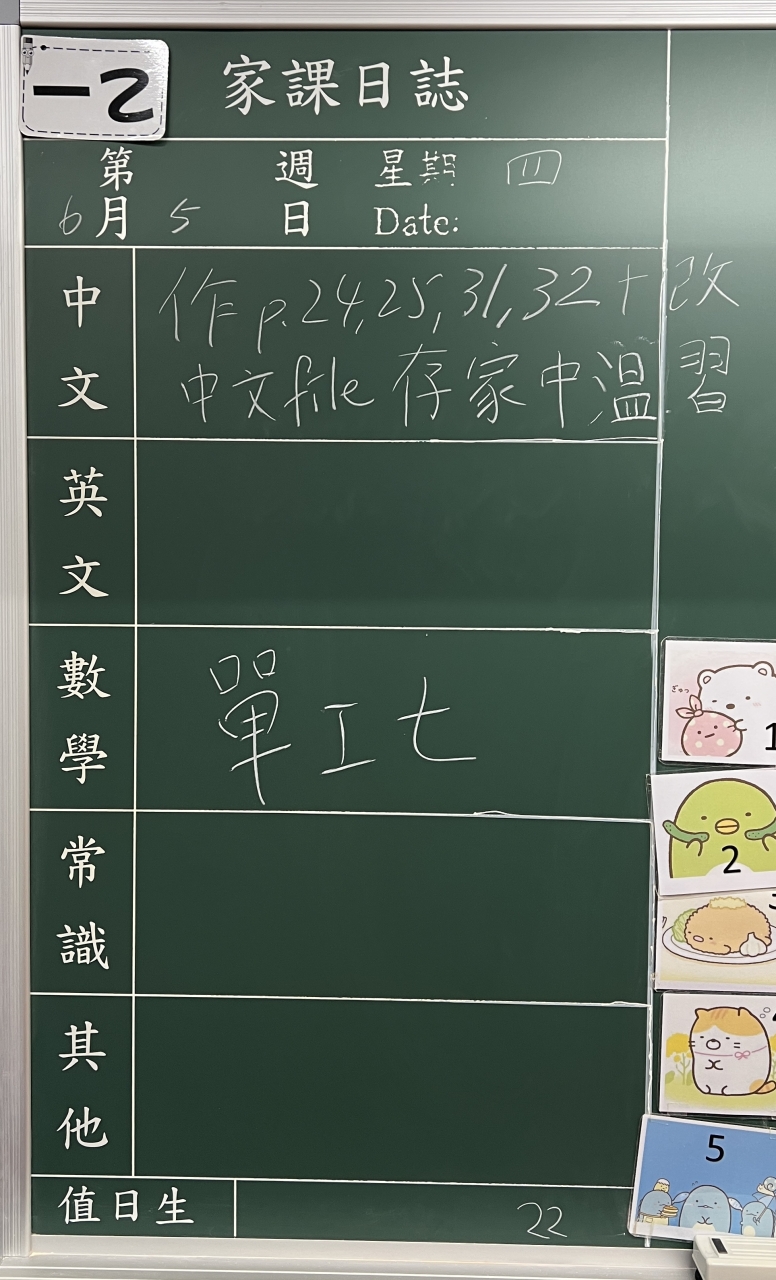 一乙
家課日誌
第 週 星期 四
6月 5 日 Date:
中文
作 p.24,25,31,32 + 改
中文file 存家中溫習
英文
數學
單工七
常識
其他
值日生 22
1
2
5